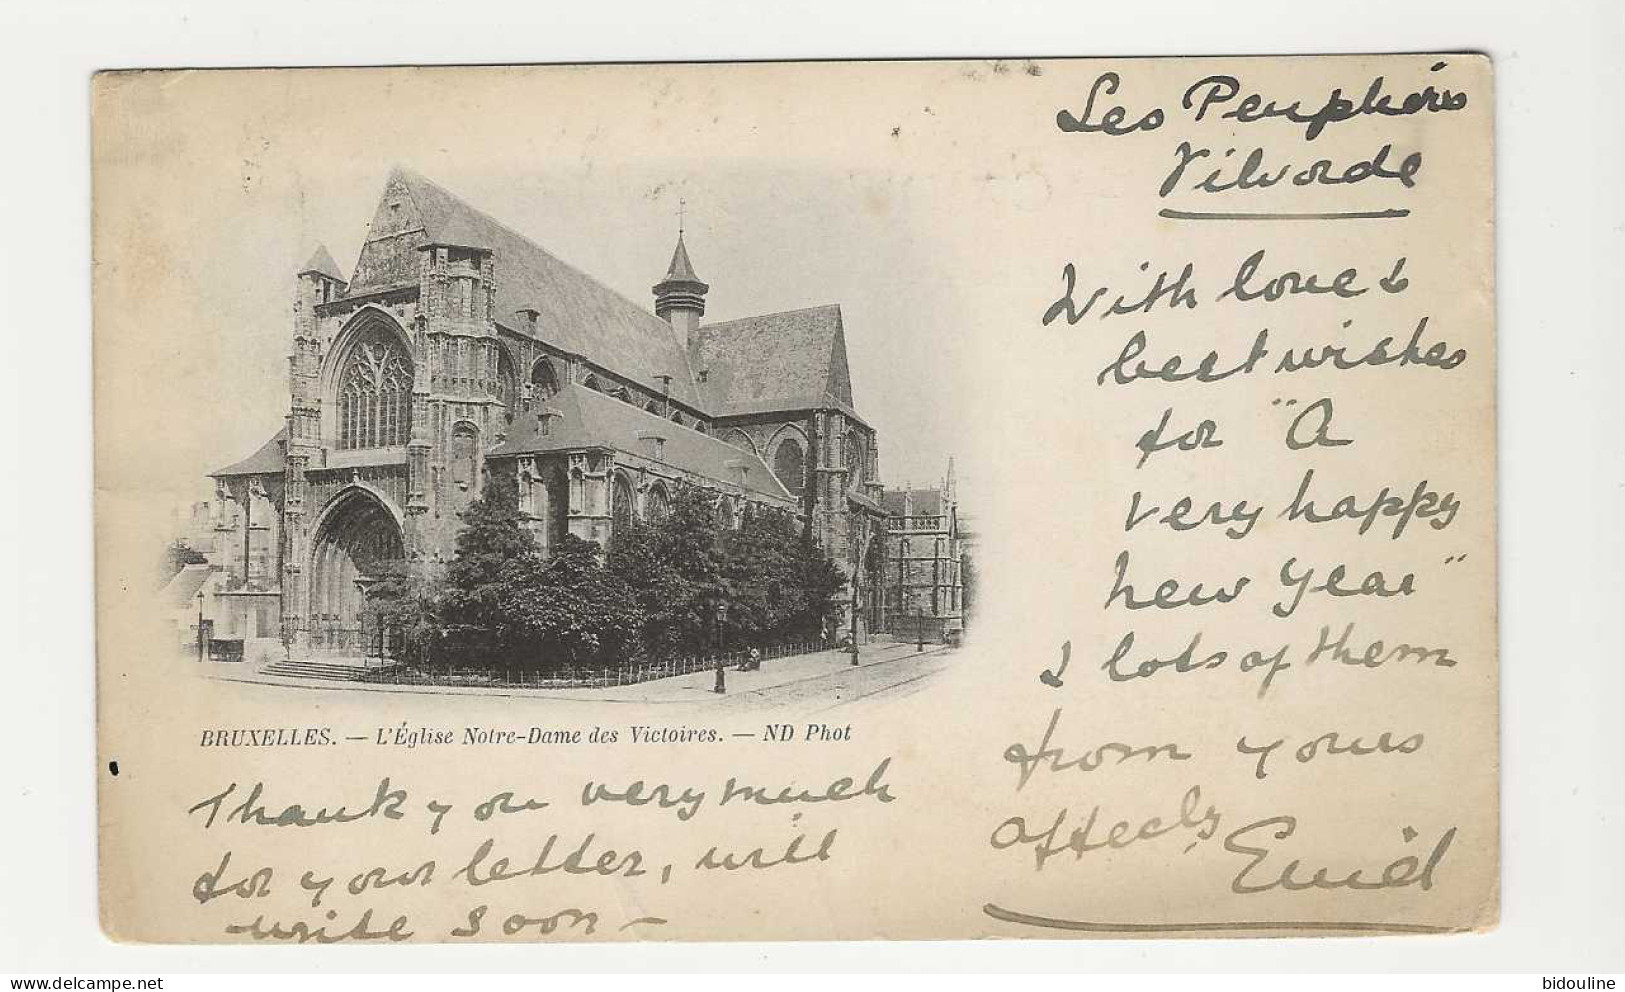 Les Peupliers
Vilvorde
With love &
best wishes
for "A
very happy
new year"
& lots of them
from yours
affecly,
Enid
BRUXELLES. — L'Église Notre-Dame des Victoires. — ND Phot
Thank you very much
for your letter, will
write soon —
delcampe.net
bidouline